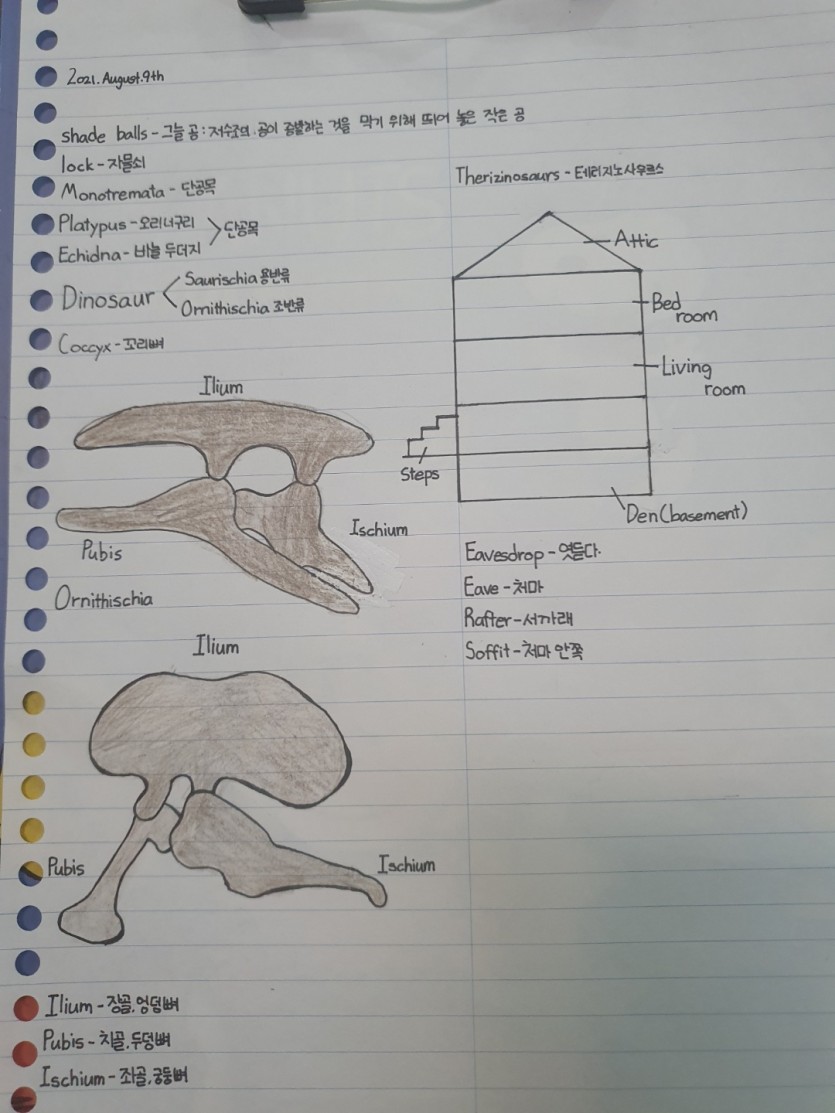 2021. August. 9th
shade balls - 그늘 공 : 저수조의 공이 증발하는 것을 막기 위해 띄어 놓은 작은 공
lock - 자물쇠
Monotremata - 단공목
Platypus - 오리너구리
Echidna - 바늘 두더지
단공목
Dinosaur
Saurischia 용반류
Ornithischia 조반류
Coccyx - 꼬리뼈
Ilium
Pubis
Ischium
Ornithischia
Ilium
Pubis
Ischium
Ilium - 장골, 엉덩뼈
Pubis - 치골, 두덩뼈
Ischium - 좌골, 궁둥뼈
Therizinosaurs - 테리지노사우르스
Attic
Bed
room
Living
room
Steps
Den(basement)
Eavesdrop - 엿듣다.
Eave - 처마
Rafter - 서까래
Soffit - 처마 안쪽